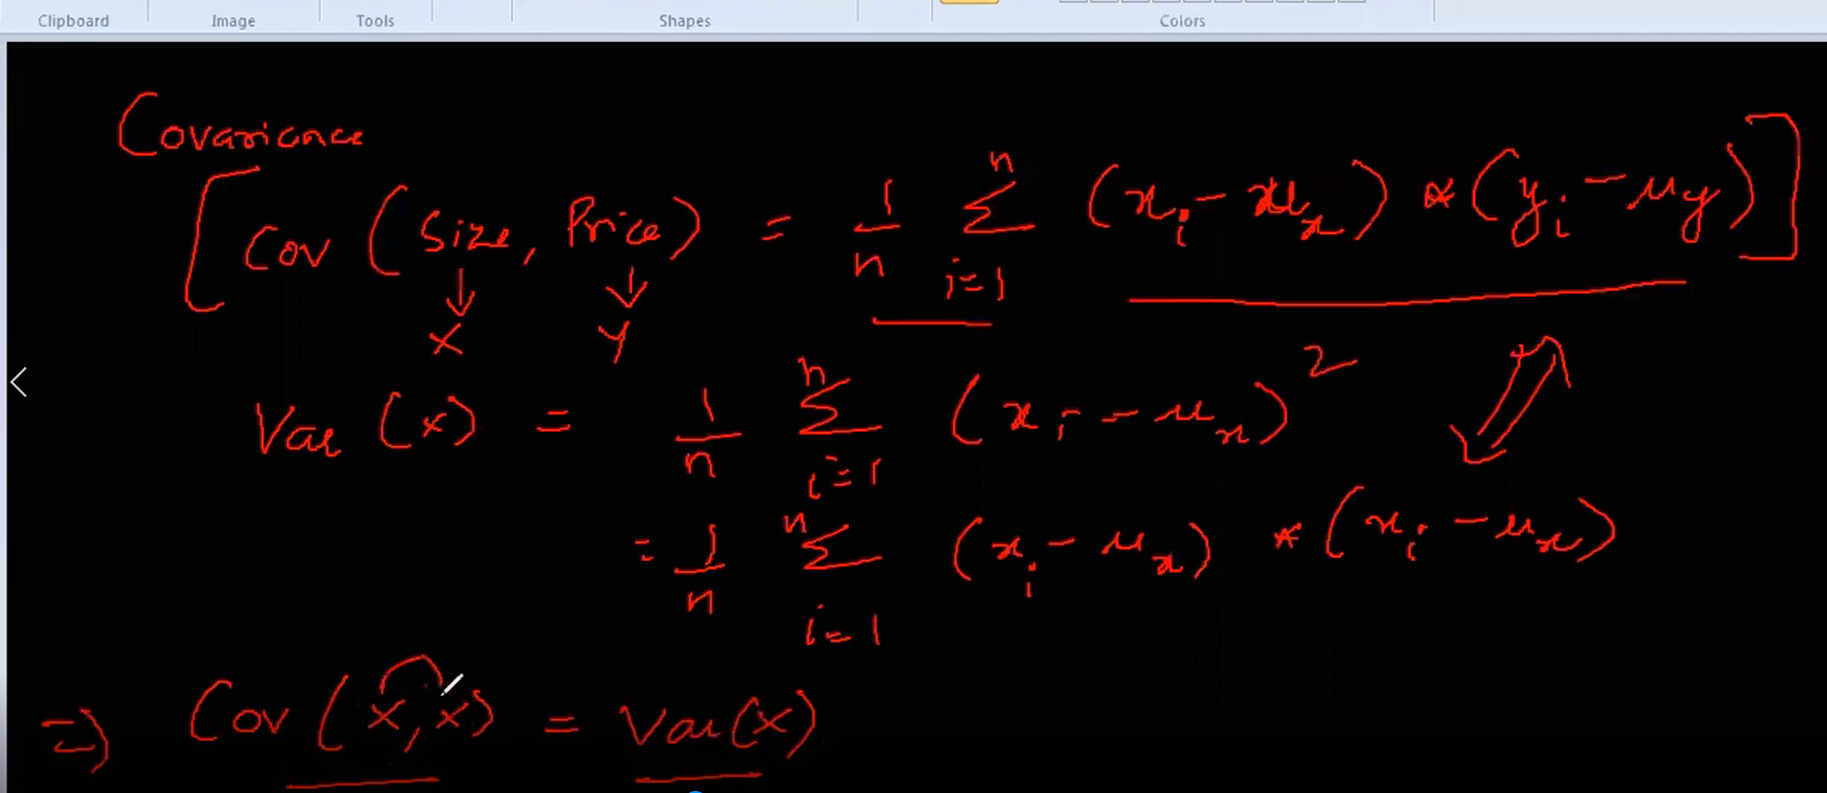 Clipboard Image Tools Shapes Colors
Covariance
[Cov (Size, Price) = 1/n n Σ i=1 (xi - μx) * (yi - μy)]
X Y
Var (x) = 1/n n Σ i=1 (xi - μx)2
= 1/n n Σ i=1 (xi - μx) * (xi - μx)
=> Cov (x, x) = Var(x)